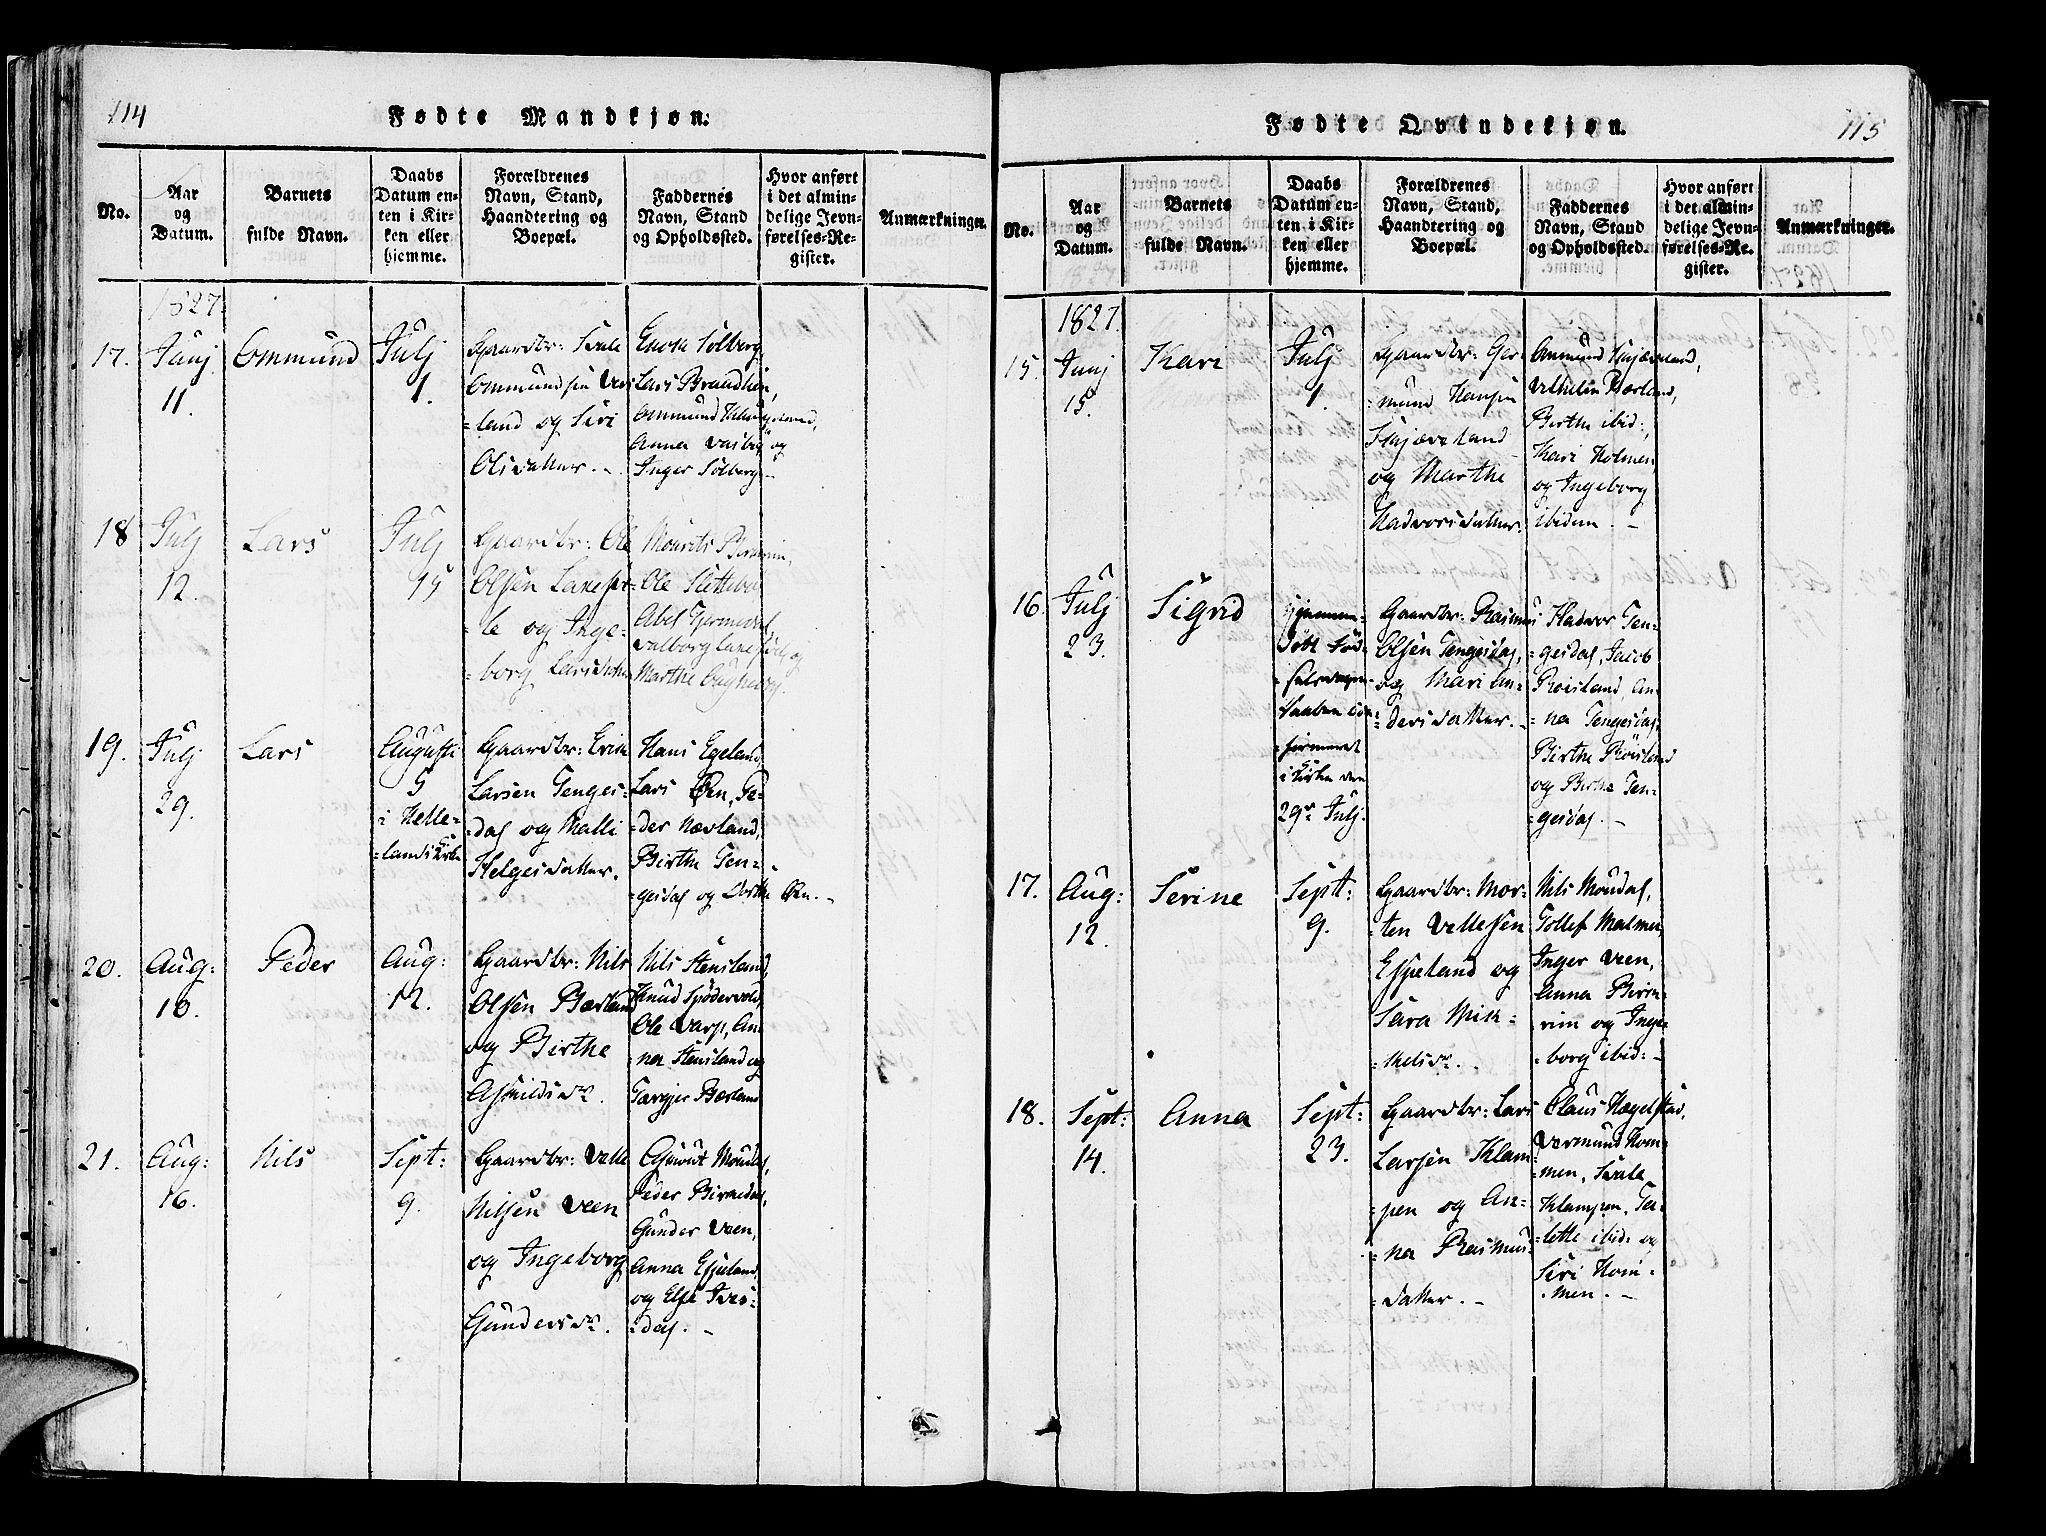 114
Fødte Mandkjøn.
No.
Aar
og
Datum.
Barnets
fulde Navn.
Daabs
Datum en-
ten i Kir-
ken eller
hjemme.
Forældrenes
Navn, Stand,
Haandtering og
Boepæl.
Faddernes
Navn, Stand
og Opholdssted.
Hvor anført
i det almin-
delige Jevn-
førelses-Re-
gister.
Anmærkninger.
1827.
17.
Junj
11.
Ommund
Julj
1.
Gaardbr: Svale
Ommundsen Ves-
=land og Siri
Olisdatter. -
Enok Sølberg,
Lars Brandsen,
Ommund
Anna Vasbø og
Inger Sølberg. -
18
Julj
12.
Lars
Julj
15
Gaardbr: Ole
Olsen
=le og Inge-
=borg Larsdatter
Mourits Birkrem,
Ole Slettebø
Abel Gjermestad,
Valborg
Marthe
19.
Julj
29.
Lars
Augusti
5
i Helle-
=lands Kirke
Gaardbr: Erik
Larsen Tenges-
=dal og Malli
Helgesdatter.
Hans Egeland,
Lars Øen, Pe-
=der Nævland,
Birthe Ten-
=gesdal og Dorthe Øen. -
20.
Aug:
10.
Peder
Aug:
12.
Gaardbr: Nils
Olsen Bærland
og Birthe
Asmildsdr.
Nils Stensland,
Knud Spødervold,
Ole Varp, An-
=na Stensland og
Tarjer Bærland
21.
Aug:
16.
Nils
Sept:
9.
Gaardbr: Velle
Nilsen Veen
og Ingeborg
Gundersdr.
Asmout Moudal,
Peder Birkedal,
Gunder Veen,
Anna Espeland,
og Else Ives-
=dal. -
Fødte Qvindekjøn.
115
No.
Aar
og
Datum.
Barnets
fulde Navn.
Daabs
Datum en-
ten i Kir-
ken eller
hjemme.
Forældrenes
Navn, Stand,
Haandtering og
Boepæl.
Faddernes
Navn, Stand
og Opholdssted.
Hvor anført
i det almin-
delige Jevn-
førelses-Re-
gister.
Anmærkninger.
1827.
15.
Junj
15.
Kari
Julj
1.
Gaardbr: Ger-
=mund Hansen
Skjæveland
og Marthe
Hadvorsdatter.
Anmund Skjæveland,
Vilhelm Bærland,
Birthe ibid:,
Kari Holmen,
og Ingeborg
ibidem. -
16.
Julj
23.
Sigrid
Hjemme-
døbt Fød-
=selsdagen
Daaben con-
=firmeret
i Kirken den
29de Julj.
Gaardbr: Rasmus
Olsen Tengesdal,
og Mari An-
=dersdatter. -
Hadvor Ten-
=gesdal, Jacob
Røisland, An-
=na Tengesdal,
Birthe Røisland
og Birthe Ten-
=gesdal. -
17.
Aug:
12.
Serine
Sept:
9.
Gaardbr: Mor-
=ten Vellesen
Espeland og
Sara Mik-
=kelsdr.
Nils Moudal,
Tollef Malmen,
Inger Veen,
Anna Birk-
rim og Inge-
=borg ibid: -
18.
Sept:
14.
Anna
Sept:
23.
Gaardbr: Lars
Larsen Klam-
=pen og An-
=na Rasmus-
=datter. -
Claus Hægelstad,
Vermund Hom-
=men, Svale
Klampen, Te-
=lette ibid: og
Siri Hom-
=men. -